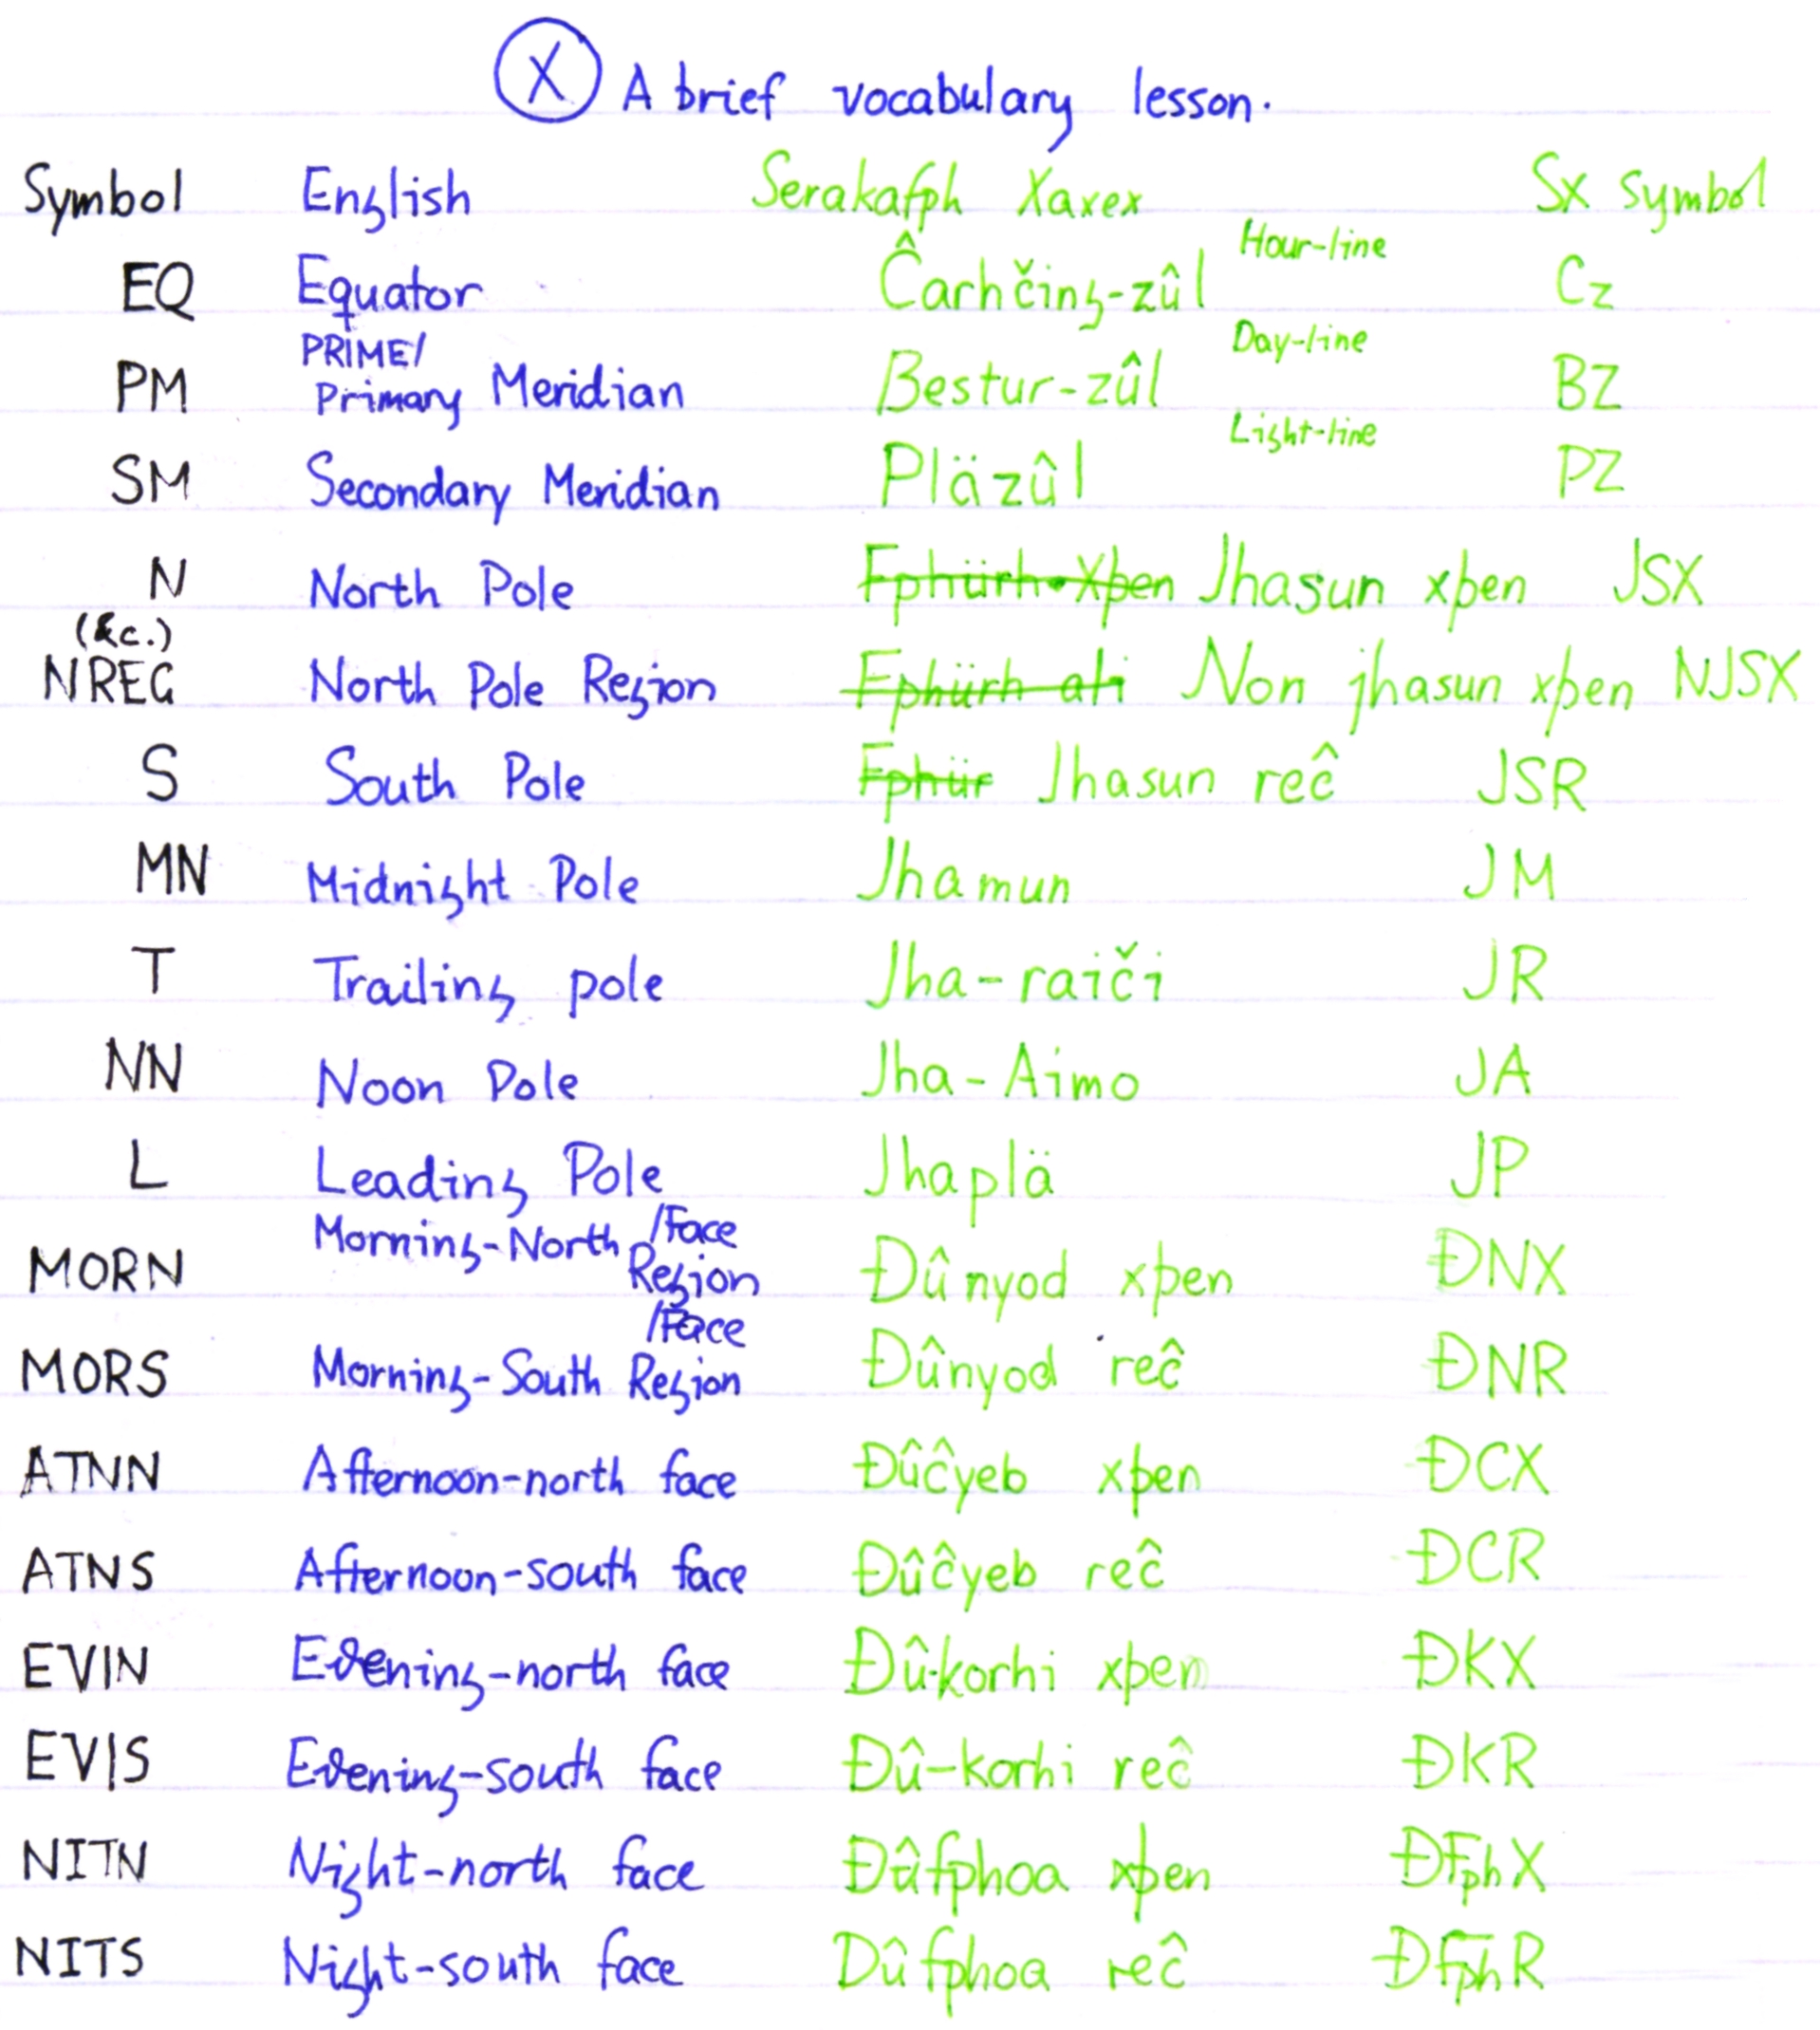 X A brief vocabulary lesson.
Symbol English Serakafph Xarex Sx symbol
EQ Equator Ĉarhčing-zûl Hour-line Cz
PM PRIME/ Primary Meridian Bestur-zûl Day-line BZ
SM Secondary Meridian Pläzûl Light-line PZ
N North Pole Fphürh-Xþen Jhasun xþen JSX
(&c.)
NREG North Pole Region Fphürh ati Non jhasun xþen NJSX
S South Pole Fphür Jhasun reĉ JSR
MN Midnight Pole Jhamun JM
T Trailing pole Jha-raiči JR
NN Noon Pole Jha-Aimo JA
L Leading Pole Jhaplä JP
MORN Morning-North /Face Region Đûnyod xþen ĐNX
MORS Morning-South /Face Region Đûnyod reĉ ĐNR
ATNN Afternoon-north face Đûĉyeb xþen ĐCX
ATNS Afternoon-south face Đûĉyeb reĉ ĐCR
EVIN Evening-north face Đû-korhi xþen ĐKX
EVIS Evening-south face Đû-korhi reĉ ĐKR
NITN Night-north face Đûfphoa xþen ĐFphX
NITS Night-south face Dûfphoa reĉ ĐFphR